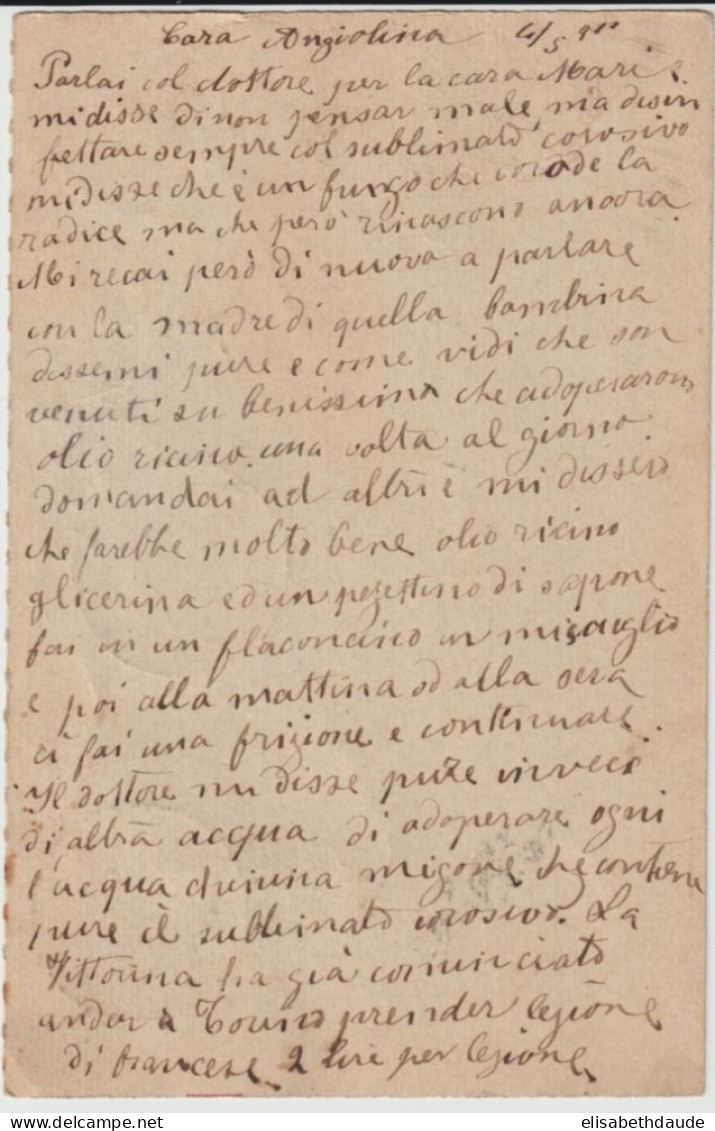 Cara Angiolina 4/5 911
Parlai col dottore per la cara Mari e
mi disse di non pensar male, ma disin
fettare sempre col sublimato corosivo
mi disse che è un fungo che corode la
radice ma che però rinascono ancora.
Mi recai però di nuovo a parlare
con la madre di quella bambina
dissemi pure e come vidi che son
venuti su benissimo che adoperarono
olio ricino una volta al giorno
domandai ad altri e mi dissero
che farebbe molto bene olio ricino
glicerina ed un pezzettino di sapone
fai in un flaconcino un miscuglio
e poi alla mattina od alla sera
ci fai una frizione e continuare.
Il dottore mi disse pure invece
di altra acqua di adoperare ogni
l'acqua chinina migone che contiene
pure il sublimato corosivo. La
Vittorina ha già cominciato
andar a Torino prender lezione
di francese 2 lire per lezione
elisabethdaude